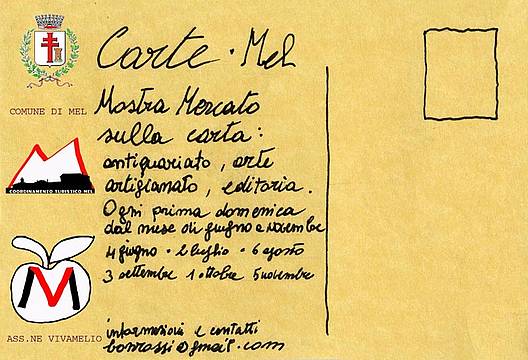 Carte · Mel
COMUNE DI MEL
Mostra Mercato
sulla carta:
antiquariato, arte
artigianato, editoria.
Ogni prima domenica
dal mese di giugno a Novembre
4 giugno · 2 luglio · 6 agosto
3 settembre 1 ottobre 5 novembre
COORDINAMENTO TURISTICO MEL
M
ASS.NE VIVAMELIO
informazioni e contatti
borrossi@gmail.com